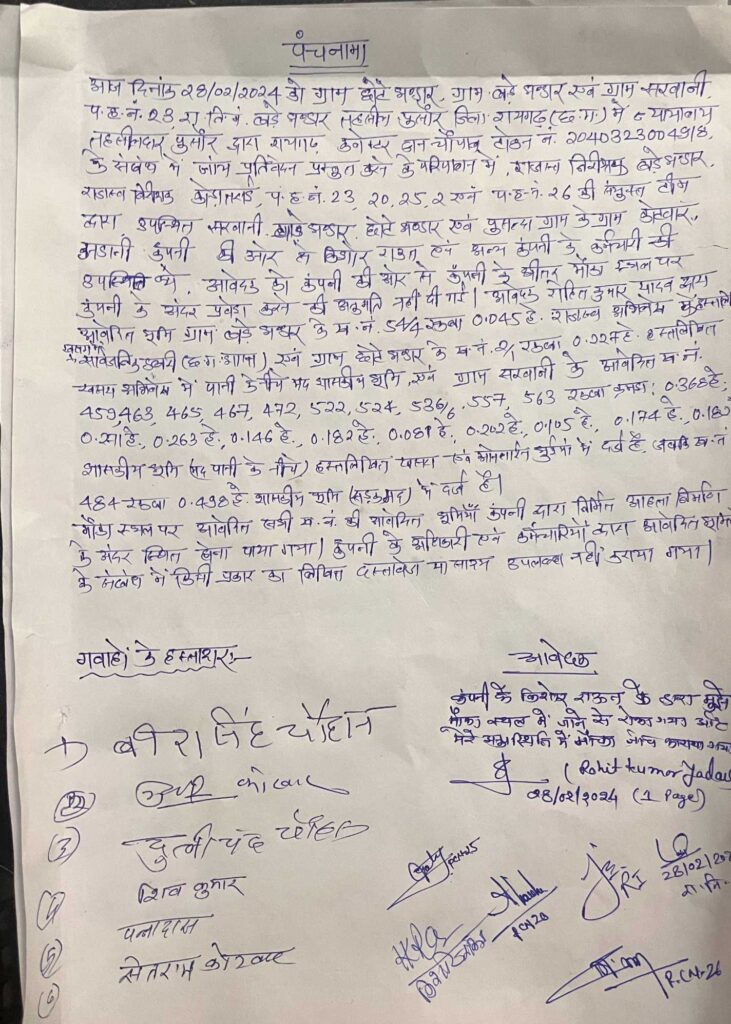 पंचनामा
आज दिनांक 28/02/2024 को ग्राम छोटे भण्डार, ग्राम बड़े भण्डार एवं ग्राम सरवानी
प.ह.नं. 23, रा.नि.मं. बड़े भण्डार तहसील पुसौर जिला-रायगढ़ (छ.ग.) में न्यायालय
तहसीलदार पुसौर द्वारा रायगढ़ कलेक्टर जन चौपाल टोकन नं. 2040323004918
के संबंध में जांच प्रतिवेदन प्रस्तुत करने के परिपालन में, राजस्व निरीक्षक बड़े भण्डार,
राजस्व निरीक्षक कोड़ातराई, प.ह.नं. 23, 20, 25, 2 एवं प.ह.नं. 26 की संयुक्त टीम
द्वारा उपस्थित सरवानी, बड़े भण्डार, छोटे भण्डार एवं ग्राम के ग्राम कोटवार,
अडानी कंपनी की ओर से किशोर राउत एवं अन्य कंपनी के कर्मचारी की
उपस्थिति में, आवेदक को कंपनी की ओर से कंपनी के भीतर मौका स्थल पर
कंपनी के अंदर प्रवेश करने की अनुमति नहीं दी गई। आवेदक रोहित कुमार यादव द्वारा
आवेदित भूमि ग्राम बड़े भण्डार के ख.नं. 544 रकबा 0.045 हे. राजस्व अभिलेख में
(छ.ग. शासन) एवं ग्राम छोटे भण्डार के ख.नं. 2/1 रकबा 0.227 हे. हस्तलिखित
खसरा अभिलेख में पानी के नीचे मद शासकीय भूमि, एवं ग्राम सरवानी के आवेदित ख.नं.
459, 463, 465, 467, 472, 522, 524, 536/6, 557, 563 रकबा क्रमशः 0.368 हे.
0.263 हे., 0.146 हे., 0.182 हे., 0.081 हे., 0.202 हे., 0.105 हे., 0.174 हे., 0.182
शासकीय भूमि (मद पानी के नीचे) हस्तलिखित खसरा एवं ऑनलाईन भुईयां में दर्ज है, जबकि ख.नं.
484 रकबा 0.498 हे. शासकीय भूमि (सड़क मद) में दर्ज है।
मौका स्थल पर आवेदित सभी ख.नं. की आवेदित भूमियाँ कंपनी द्वारा निर्मित आहता निर्माण
के अंदर स्थित होना पाया गया। कंपनी के अधिकारी एवं कर्मचारियों द्वारा आवेदित भूमि
के संबंध में किसी प्रकार का लिखित दस्तावेज या साक्ष्य उपलब्ध नहीं कराया गया।
गवाहों के हस्ताक्षर:-
आवेदक
कंपनी के किशोर राऊत के द्वारा मुझे
मौका स्थल में जाने से रोका गया और
मेरे अनुपस्थिति में मौका जांच कराया गया
(Rohit Kumar Yadav)
28/02/2024 (1 Page)
सिंह चौहान
कोटवार
3
चौहान
शिव कुमार
सेतराम कोटवार
PCN-25
PCN 20
RI
28/02/202
रा.नि.
P.C.N-26